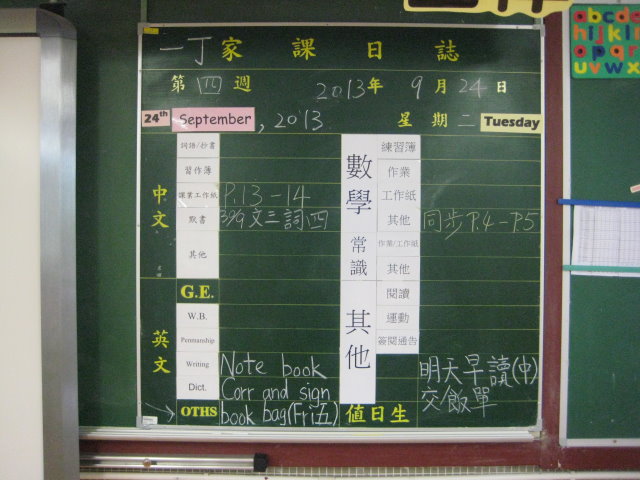 一丁家課日誌
第四週 2013年9月24日
24th September, 2013 星期二 Tuesday
中文
詞語/抄書
習作簿
課業工作紙 P.13-14
默書 文三詞四
其他
英文
G.E.
W.B.
Penmanship
Writing Note book
Dict. Corr and sign
OTHS book bag(Fri五)
數學
練習簿
作業
工作紙
其他 同步P.4-P.5
常識
作業/工作紙
其他
其他
閱讀
運動
簽閱通告
明天早讀(中)
交飯單
值日生
abcde
opqr
uvwx